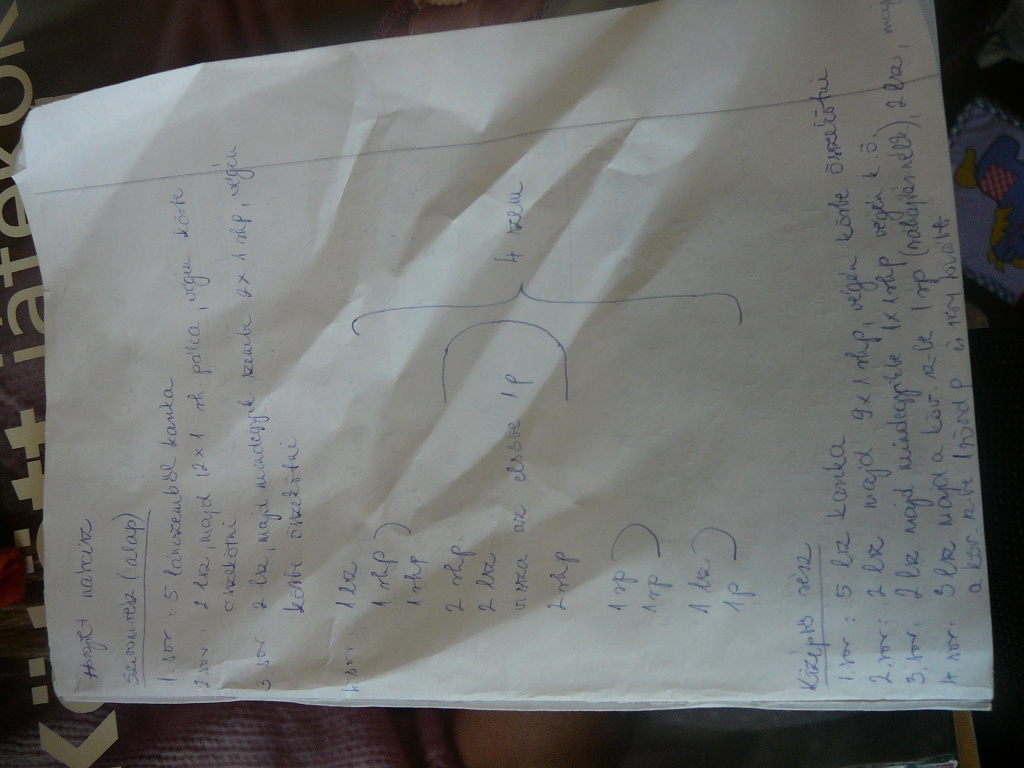 Sziromrész (alap)
1. sor: 5 láncszemből karika
2. sor: 2 lsz, majd 12 x 1 rh. pálca, végén körbe
összekötni
3. sor: 2 lsz, majd mindegyik szembe 2x 1 rhp, végén
körbe összekötni
4. sor: 1 lsz
1 rhp
1 rhp
2 rhp
2 lsz
vissza az elsőbe 1p
2 rhp
1 rp
1 rp
1 lsz
1p
4 szem
Középső rész
1. sor: 5 lsz karika
2. sor: 2 lsz majd 9 x 1 rhp, végén körbe összekötni
3. sor: 2 lsz majd mindegyikbe 1x 1 rhp végén k.ö.
4. sor. 3 lsz majd a köv. sz-be 1 rp (ráhajtás nélk), 2 lsz,
a köv. sz-be
Kötött játékok